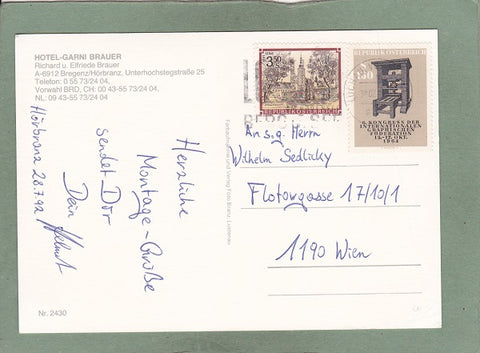 HOTEL-GARNI BRAUER
Richard u. Elfriede Brauer
A-6912 Bregenz/Hörbranz, Unterhochstegstraße 25
Telefon: 0 55 73/24 04,
Vorwahl BRD, CH: 00 43-55 73/24 04,
NL: 09 43-55 73/24 04
Hörbranz 28.7.92
Herzliche
Montage-Grüße
sendet Dir
Dein Helmut
Nr. 2430
3.50
REPUBLIK ÖSTERREICH
REPUBLIK ÖSTERREICH
6. KONGRESS DER
INTERNATIONALEN
GRAPHISCHEN
FÖDERATION
12.-17. OKT.
1964
An s.g. Herrn
Wilhelm Sedlicky
Flotowgasse 17/10/1
1190 Wien